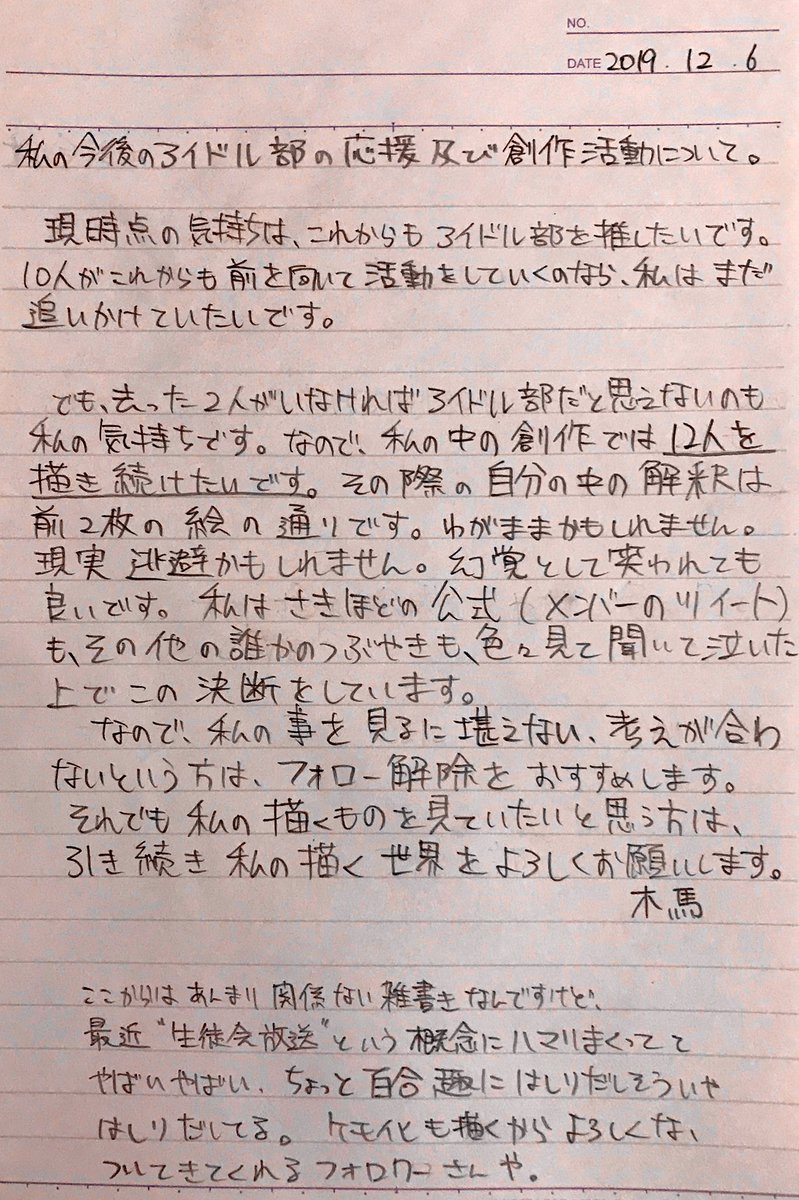 NO.
DATE 2019.12.6
私の今後のアイドル部の応援及び創作活動について。
現時点の気持ちは、これからもアイドル部を推したいです。
10人がこれからも前を向いて活動をしていくのなら、私はまだ
追いかけていたいです。
でも、去った2人がいなければアイドル部だと思えないのも
私の気持ちです。なので、私の中の創作では12人を
描き続けたいです。その際の自分の中の解釈は
前2枚の絵の通りです。わがままかもしれません。
現実逃避かもしれません。幻覚として笑われても
良いです。私はさきほどの公式(メンバーのツイート)
も、その他の誰かのつぶやきも、色々見て聞いて泣いた
上でこの決断をしています。
なので、私の事を見るに堪えない、考えが合わ
ないという方は、フォロー解除をおすすめします。
それでも私の描くものを見ていたいと思う方は、
引き続き私の描く世界をよろしくお願いします。
木馬
ここからはあんまり関係ない雑書きなんですけど、
最近"生徒会放送"という概念にハマりまくってて
やばいやばい、ちょっと百合趣にはしりだしそういや
はしりだしてる。ケモイヒも描くからよろしくな、
ついてきてくれるフォロワーさんや。